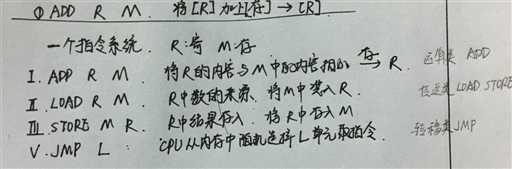 ① ADD R M. 将[R]加上[存] → [R]
一个指令系统. R:寄 M:存.
I. ADD R M. 将R的内容与M中的内容相加 存→ R. 运算类 ADD
II. LOAD R M. R中数的来源、将M中装入R. 传送类 LOAD STORE
III. STORE M R. R中结果存入. 将R中存入M
V. JMP L : CPU从内存中随机选择L单元取指令. 转移类JMP